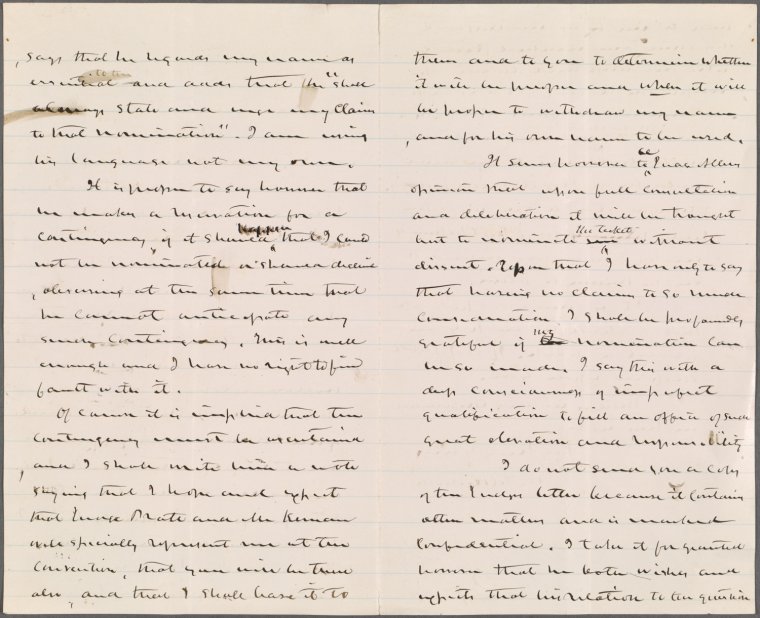 says that he regards my name as
essential to it and adds that he "shall
always state and urge my claim
to that nomination". I am using
his language not my own.
It is proper to say however that
he makes a reservation for a
contingency if it should happen that I could
not be nominated or should decline
, observing at the same time that
he cannot anticipate any
such contingency. This is well
enough and I have no right to find
fault with it.
Of course it is implied that the
contingency must be ascertained
, and I shall write him a note
saying that I hope and expect
that Judge Pratt and Mr Kernan
will specially represent me at the
Convention, that you will be there
also, and that I shall leave it to
them and to you to determine whether
it will be proper and when it will
be proper to withdraw my name
, and for his own name to be used.
It seems however to be Judge Allens
opinion that upon full consultation
and deliberation it will be thought
best to nominate the ticket without
dissent. Upon that I have only to say
that having no claims to so much
consideration I shall be profoundly
grateful if my nomination can
be so made. I say this with a
deep consciousness of imperfect
qualification to fill an office of such
great elevation and responsibility
I do not send you a copy
of the Judges letter because it contains
other matters and is marked
Confidential. I take it for granted
however that he both wishes and
expects that his relation to the question